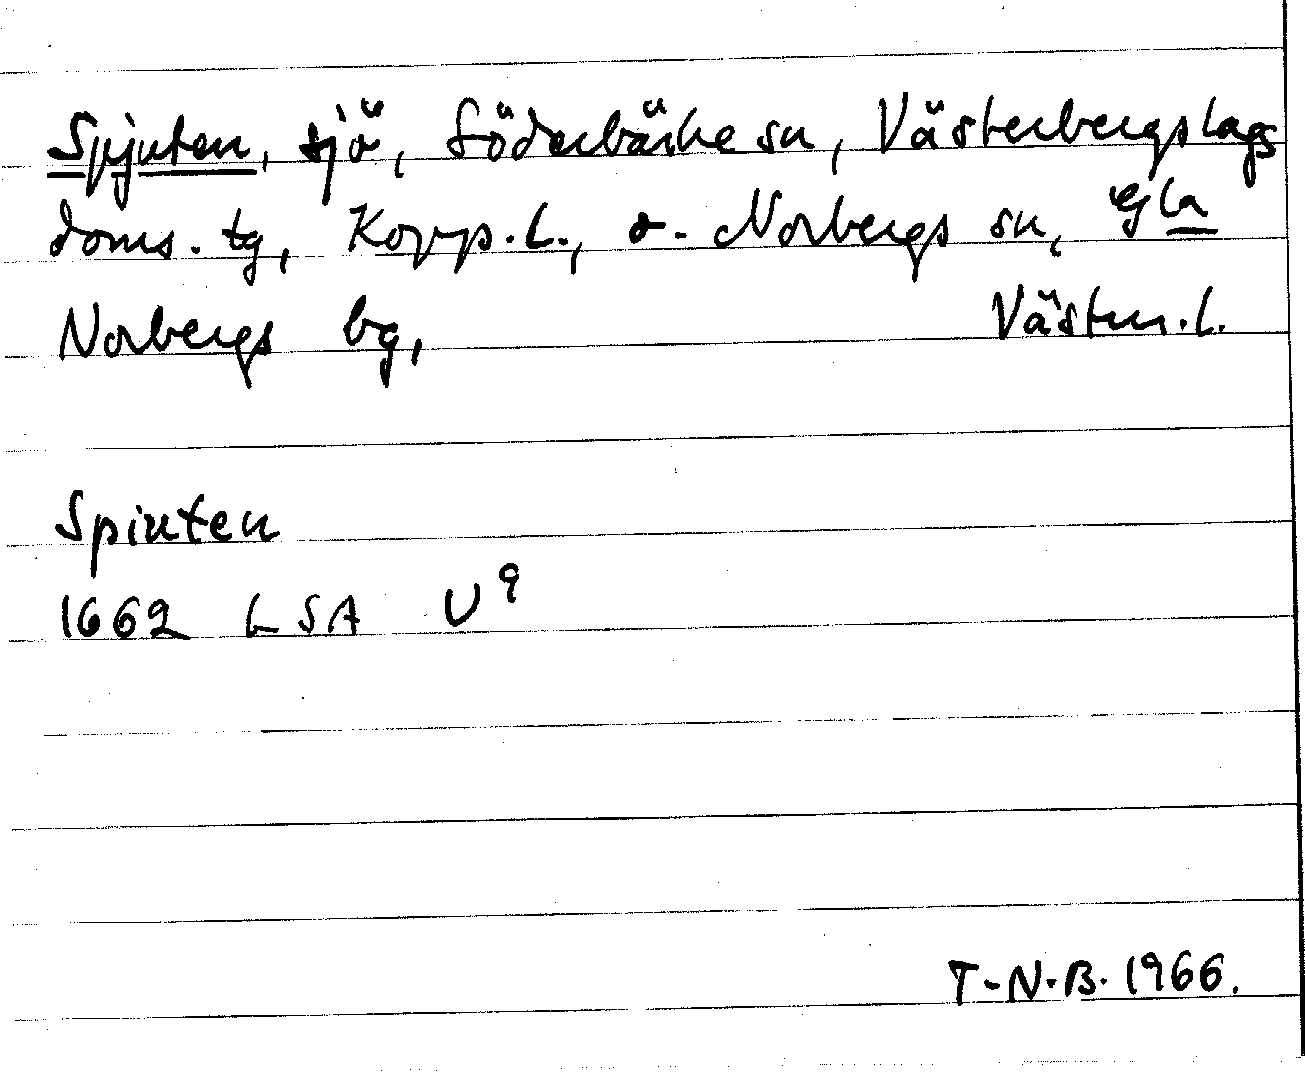 Spjuten, sjö, Söderbärke sn, Västerbergslags
doms. tg, Kopp. L., o. Norbergs sn, Gla
Norbergs bg, Västm. l.
Spiuten
1662 LSA U9
T-N.B. 1966.